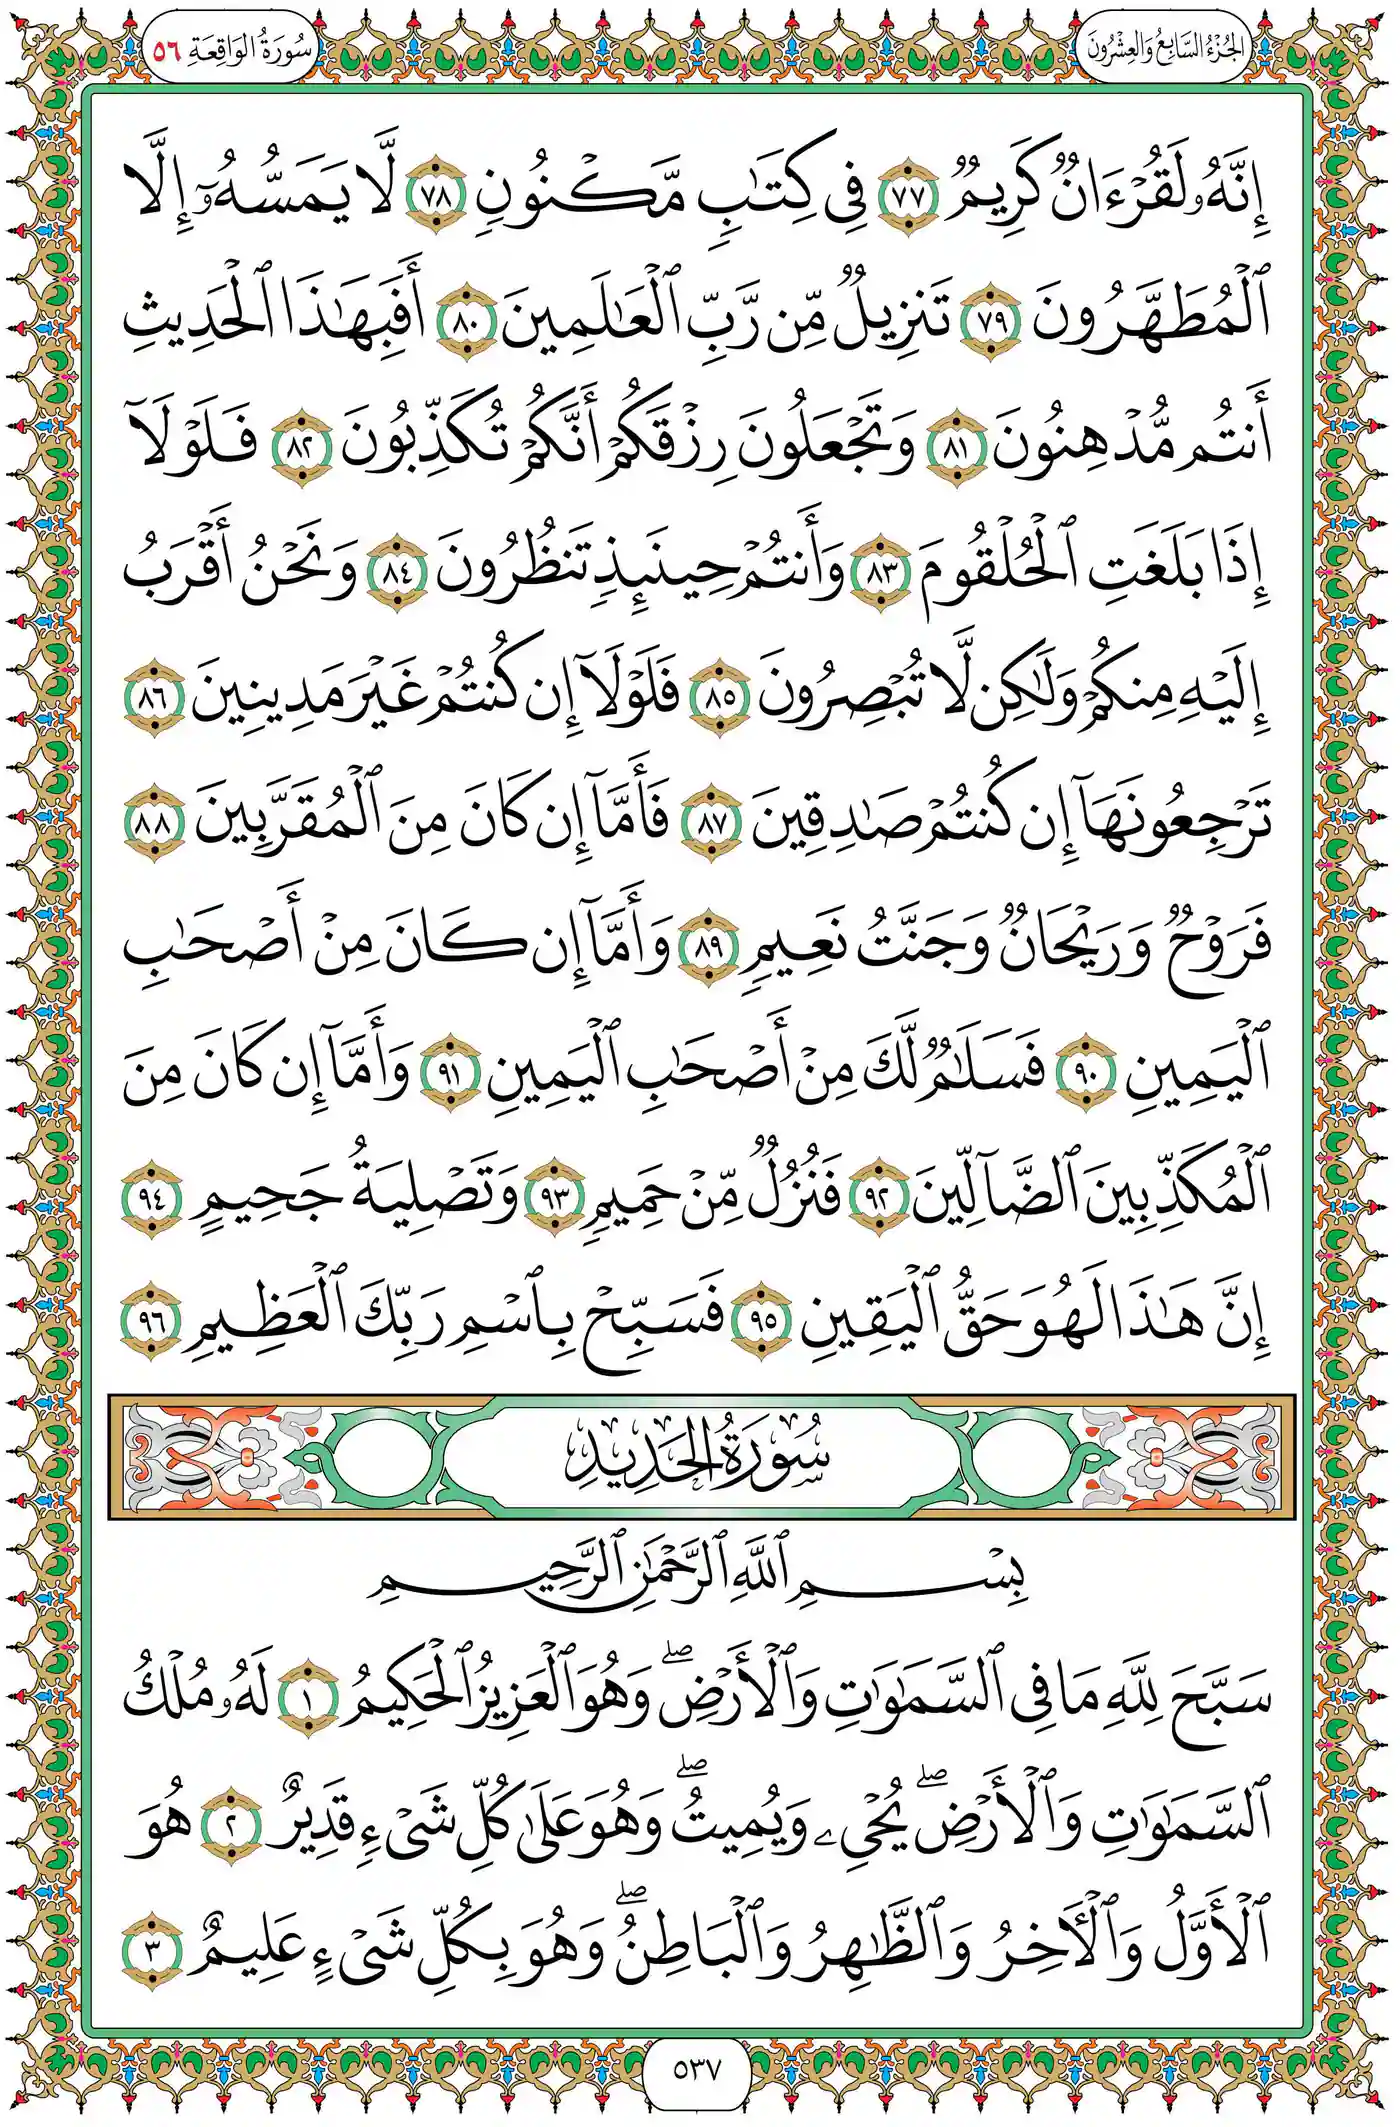 الجُزْءُ السَّابِعُ وَالعِشْرُونَ
سُورَةُ الوَاقِعَةِ ٥٦
إِنَّهُۥ لَقُرْءَانٌ كَرِيمٌ ٧٧ فِي كِتَٰبٍ مَّكْنُونٍ ٧٨ لَّا يَمَسُّهُۥٓ إِلَّا
ٱلْمُطَهَّرُونَ ٧٩ تَنزِيلٌ مِّن رَّبِّ ٱلْعَٰلَمِينَ ٨٠ أَفَبِهَٰذَا ٱلْحَدِيثِ
أَنتُم مُّدْهِنُونَ ٨١ وَتَجْعَلُونَ رِزْقَكُمْ أَنَّكُمْ تُكَذِّبُونَ ٨٢ فَلَوْلَآ
إِذَا بَلَغَتِ ٱلْحُلْقُومَ ٨٣ وَأَنتُمْ حِينَئِذٍ تَنظُرُونَ ٨٤ وَنَحْنُ أَقْرَبُ
إِلَيْهِ مِنكُمْ وَلَٰكِن لَّا تُبْصِرُونَ ٨٥ فَلَوْلَآ إِن كُنتُمْ غَيْرَ مَدِينِينَ ٨٦
تَرْجِعُونَهَآ إِن كُنتُمْ صَٰدِقِينَ ٨٧ فَأَمَّآ إِن كَانَ مِنَ ٱلْمُقَرَّبِينَ ٨٨
فَرَوْحٌ وَرَيْحَانٌ وَجَنَّتُ نَعِيمٍ ٨٩ وَأَمَّآ إِن كَانَ مِنْ أَصْحَٰبِ
ٱلْيَمِينِ ٩٠ فَسَلَٰمٌ لَّكَ مِنْ أَصْحَٰبِ ٱلْيَمِينِ ٩١ وَأَمَّآ إِن كَانَ مِنَ
ٱلْمُكَذِّبِينَ ٱلضَّآلِّينَ ٩٢ فَنُزُلٌ مِّنْ حَمِيمٍ ٩٣ وَتَصْلِيَةُ جَحِيمٍ ٩٤
إِنَّ هَٰذَا لَهُوَ حَقُّ ٱلْيَقِينِ ٩٥ فَسَبِّحْ بِٱسْمِ رَبِّكَ ٱلْعَظِيمِ ٩٦
سُورَةُ الحَدِيدِ
بِسْمِ ٱللَّهِ ٱلرَّحْمَٰنِ ٱلرَّحِيمِ
سَبَّحَ لِلَّهِ مَا فِي ٱلسَّمَٰوَٰتِ وَٱلْأَرْضِۖ وَهُوَ ٱلْعَزِيزُ ٱلْحَكِيمُ ١ لَهُۥ مُلْكُ
ٱلسَّمَٰوَٰتِ وَٱلْأَرْضِۖ يُحْيِۦ وَيُمِيتُۖ وَهُوَ عَلَىٰ كُلِّ شَيْءٍ قَدِيرٌ ٢ هُوَ
ٱلْأَوَّلُ وَٱلْأٓخِرُ وَٱلظَّٰهِرُ وَٱلْبَاطِنُۖ وَهُوَ بِكُلِّ شَيْءٍ عَلِيمٌ ٣
٥٣٧